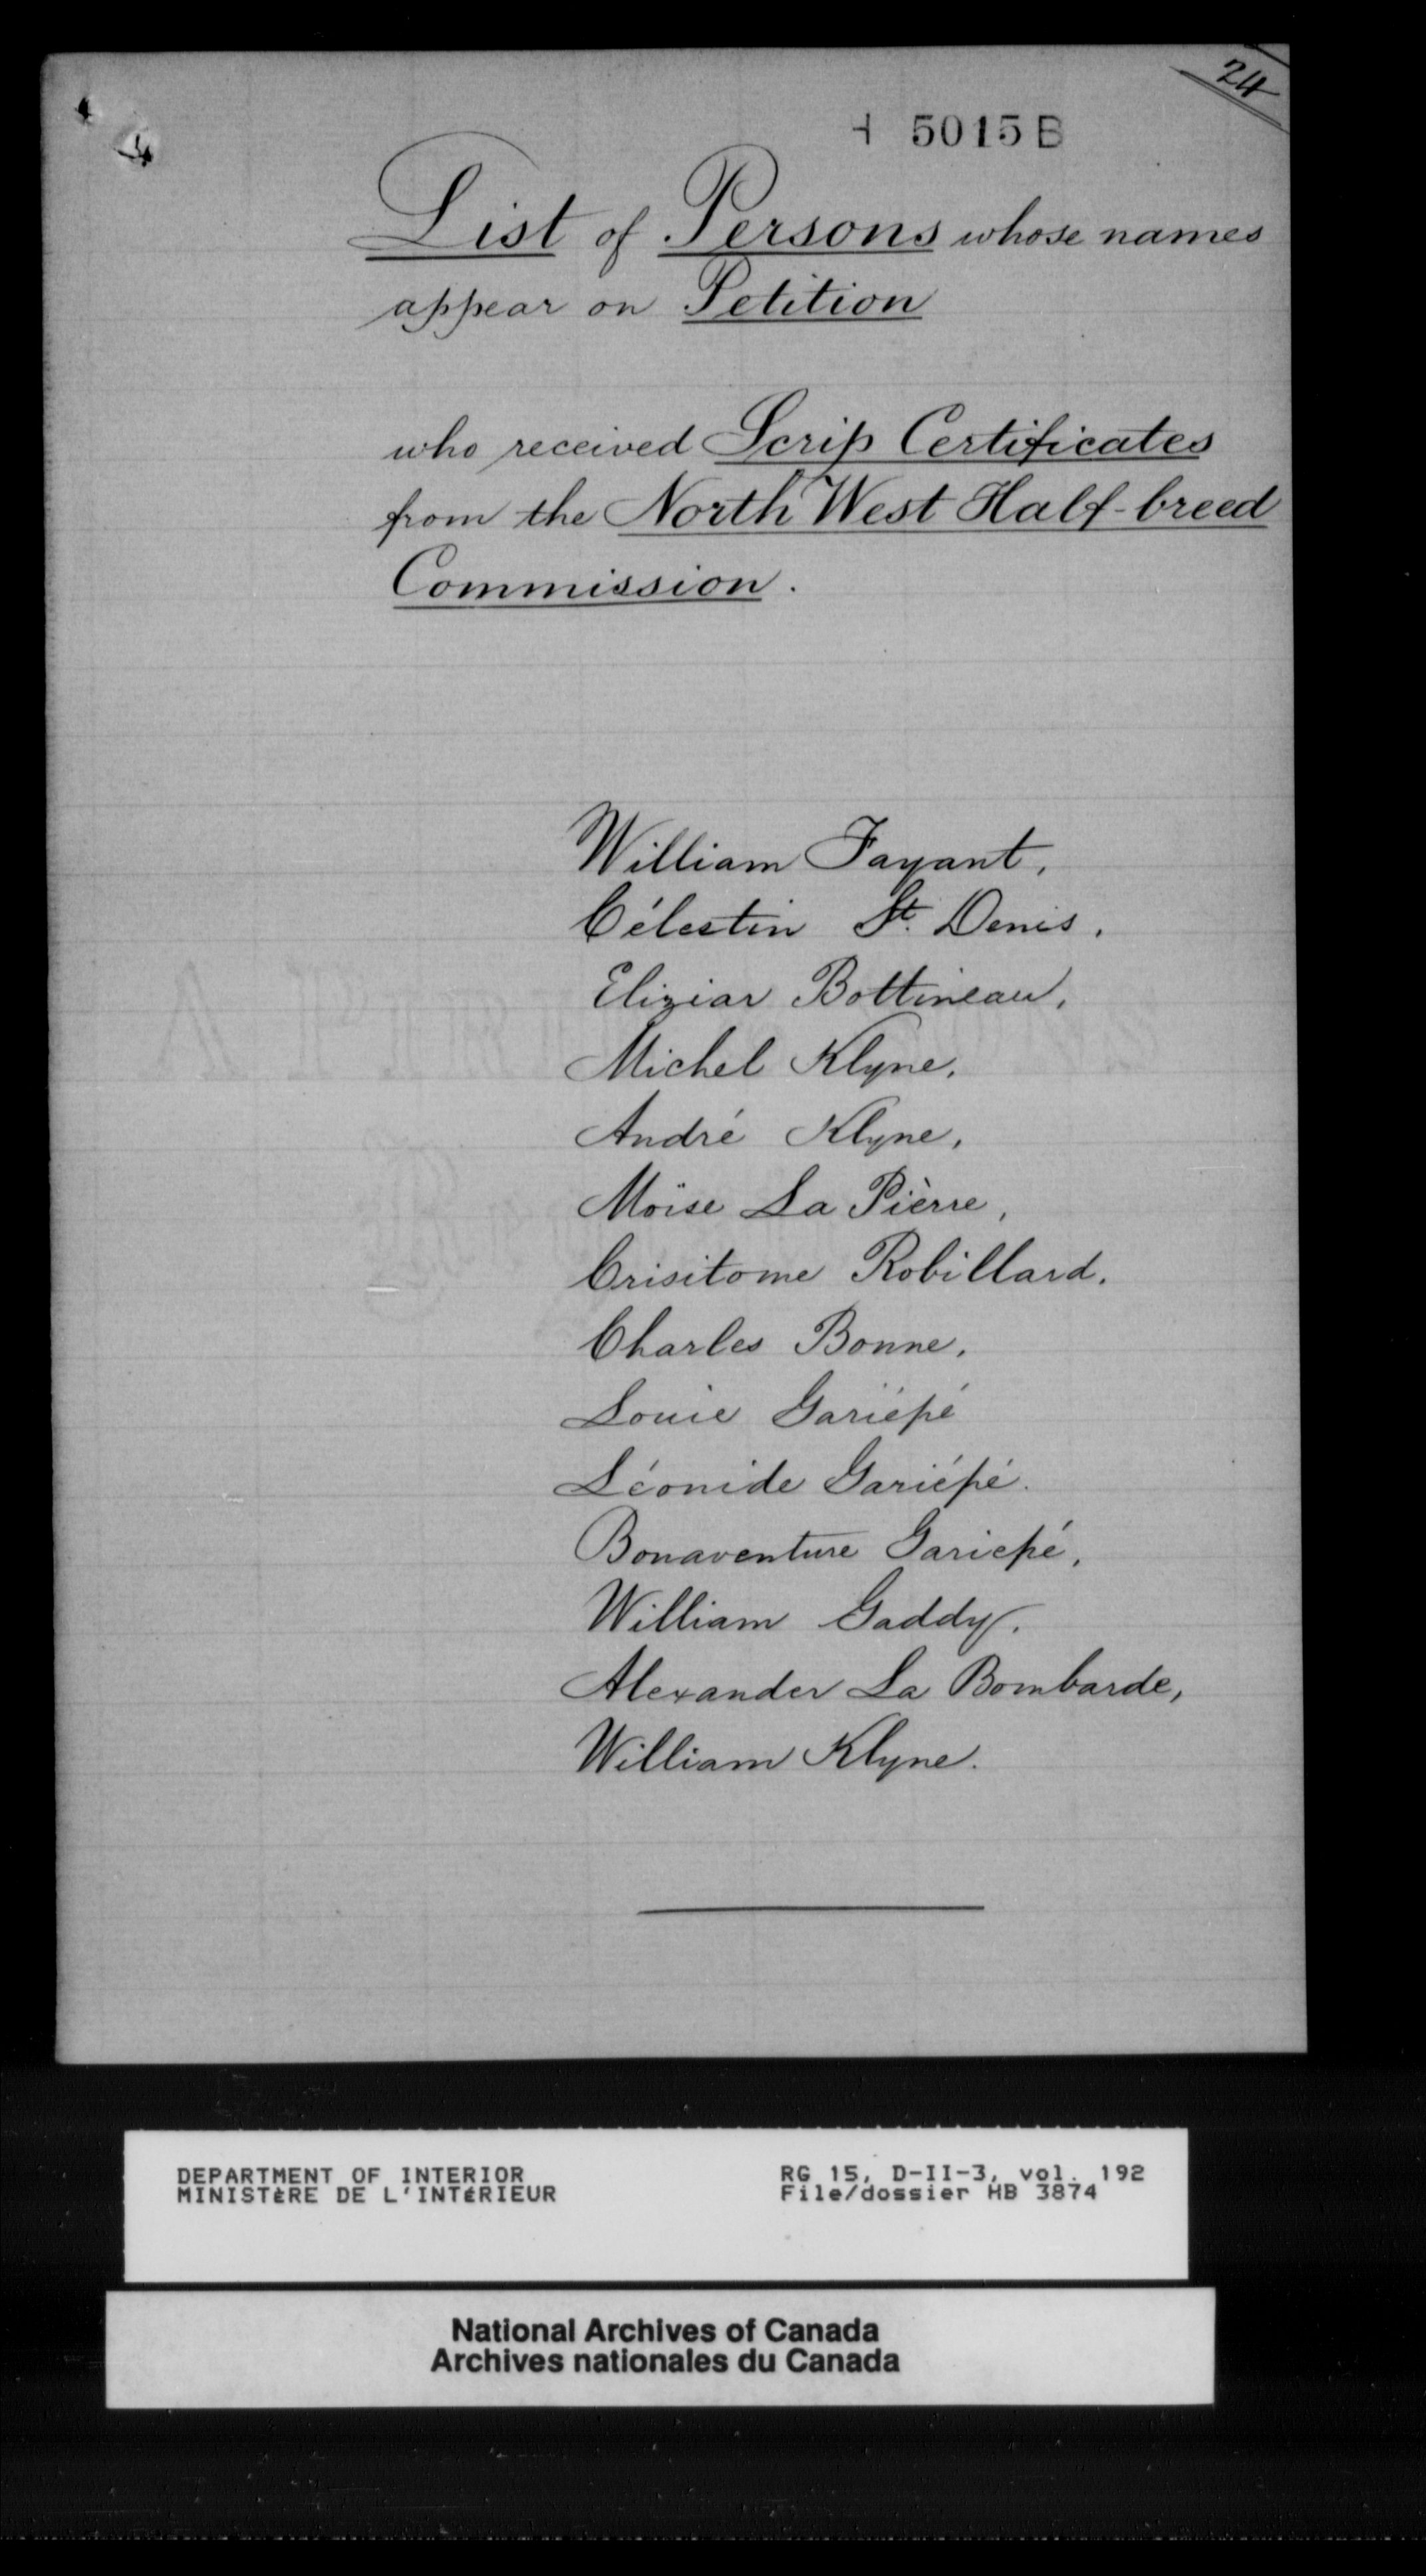 24
5015 B
List of Persons whose names
appear on Petition
who received Scrip Certificates
from the North West Half-breed
Commission.
William Fayant,
Célestin St. Denis,
Eliziar Bottineau,
Michel Klyne,
André Klyne,
Moïse La Pièrre,
Crisitome Robillard.
Charles Bonne,
Louie Gariépé
Léonide Gariépé.
Bonaventure Gariepé,
William Gaddy.
Alexander La Bombarde,
William Klyne.
DEPARTMENT OF INTERIOR
MINISTÈRE DE L'INTÉRIEUR
RG 15, D-II-3, vol. 192
File/dossier HB 3874
National Archives of Canada
Archives nationales du Canada